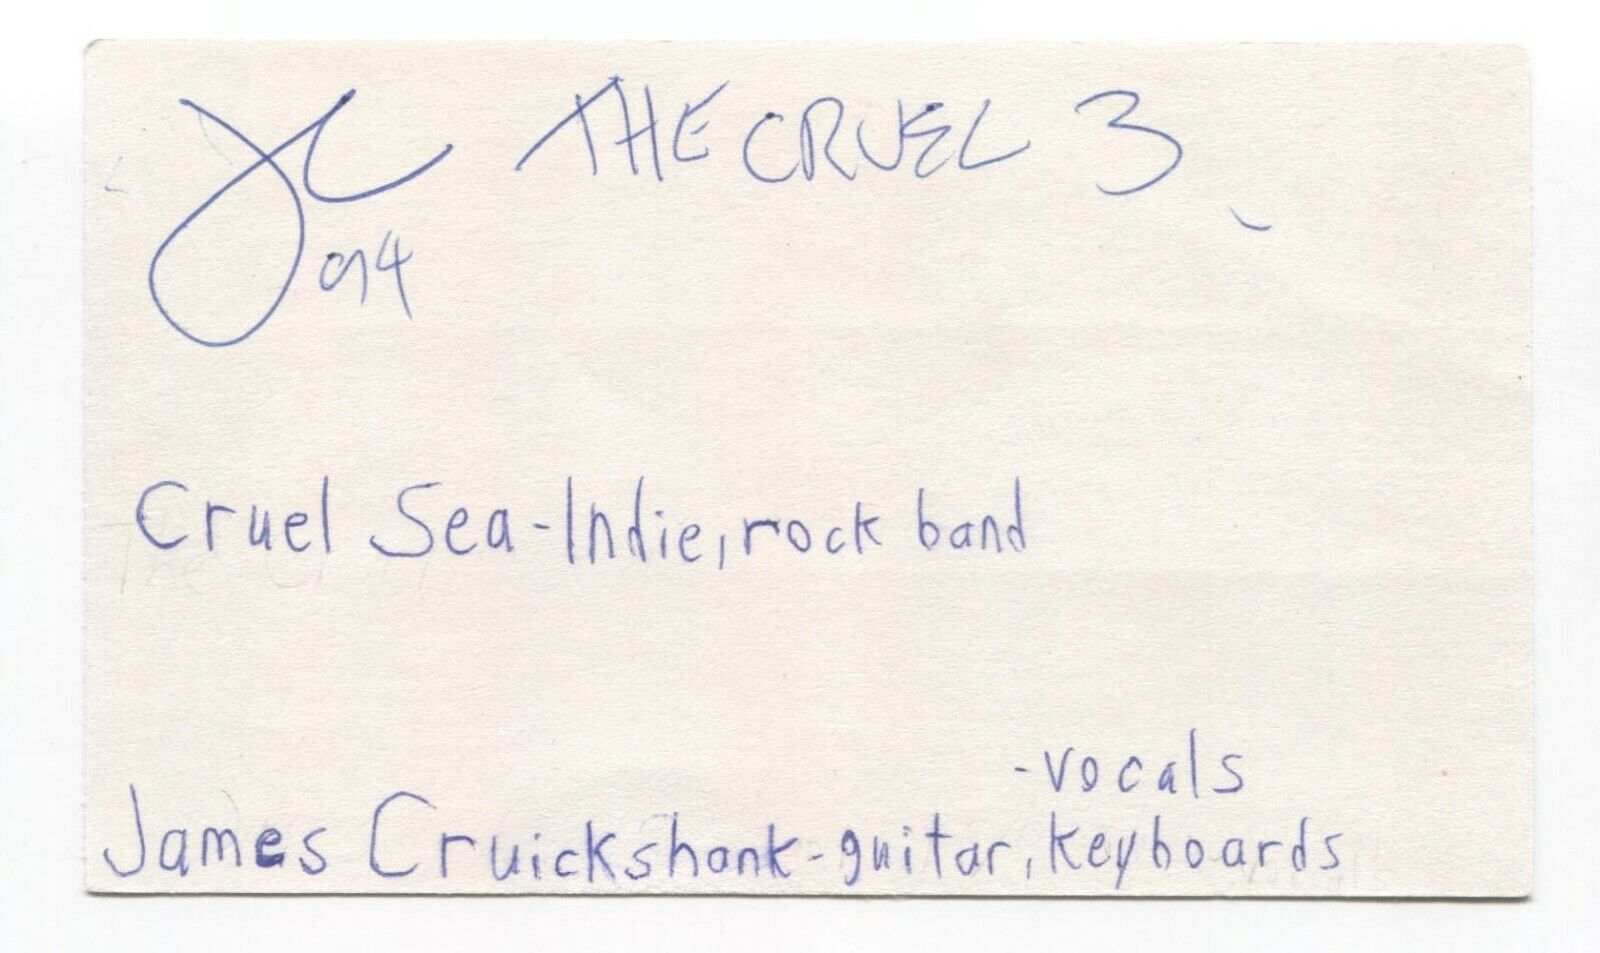 JC THE CRUEL 3
94
Cruel Sea-Indie, rock band
-vocals
James Cruickshank-guitar, keyboards